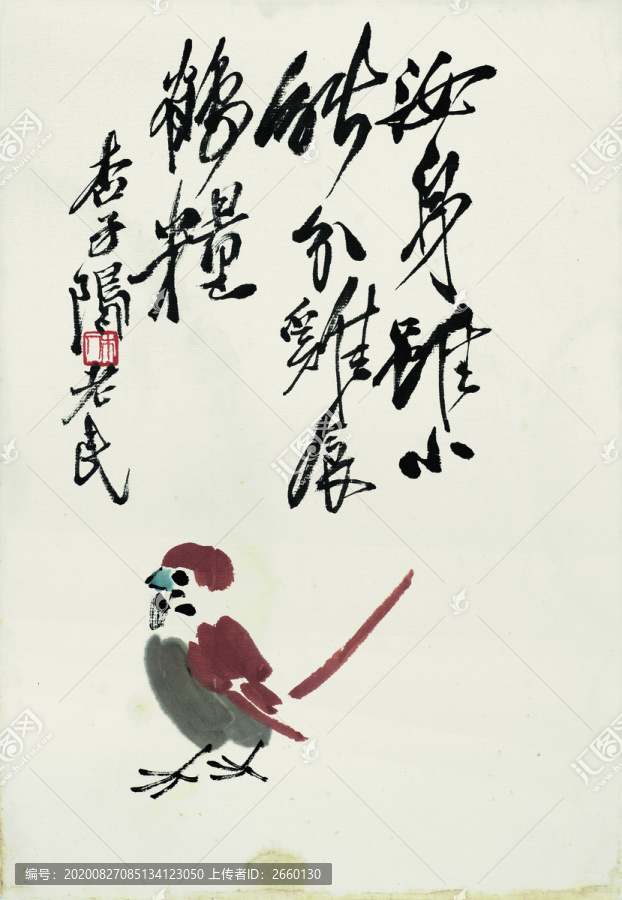 汝身雖小
能分雞食
鶴糧
杏子隖老民
木人
编号：20200827085134123050 上传者ID：2660130